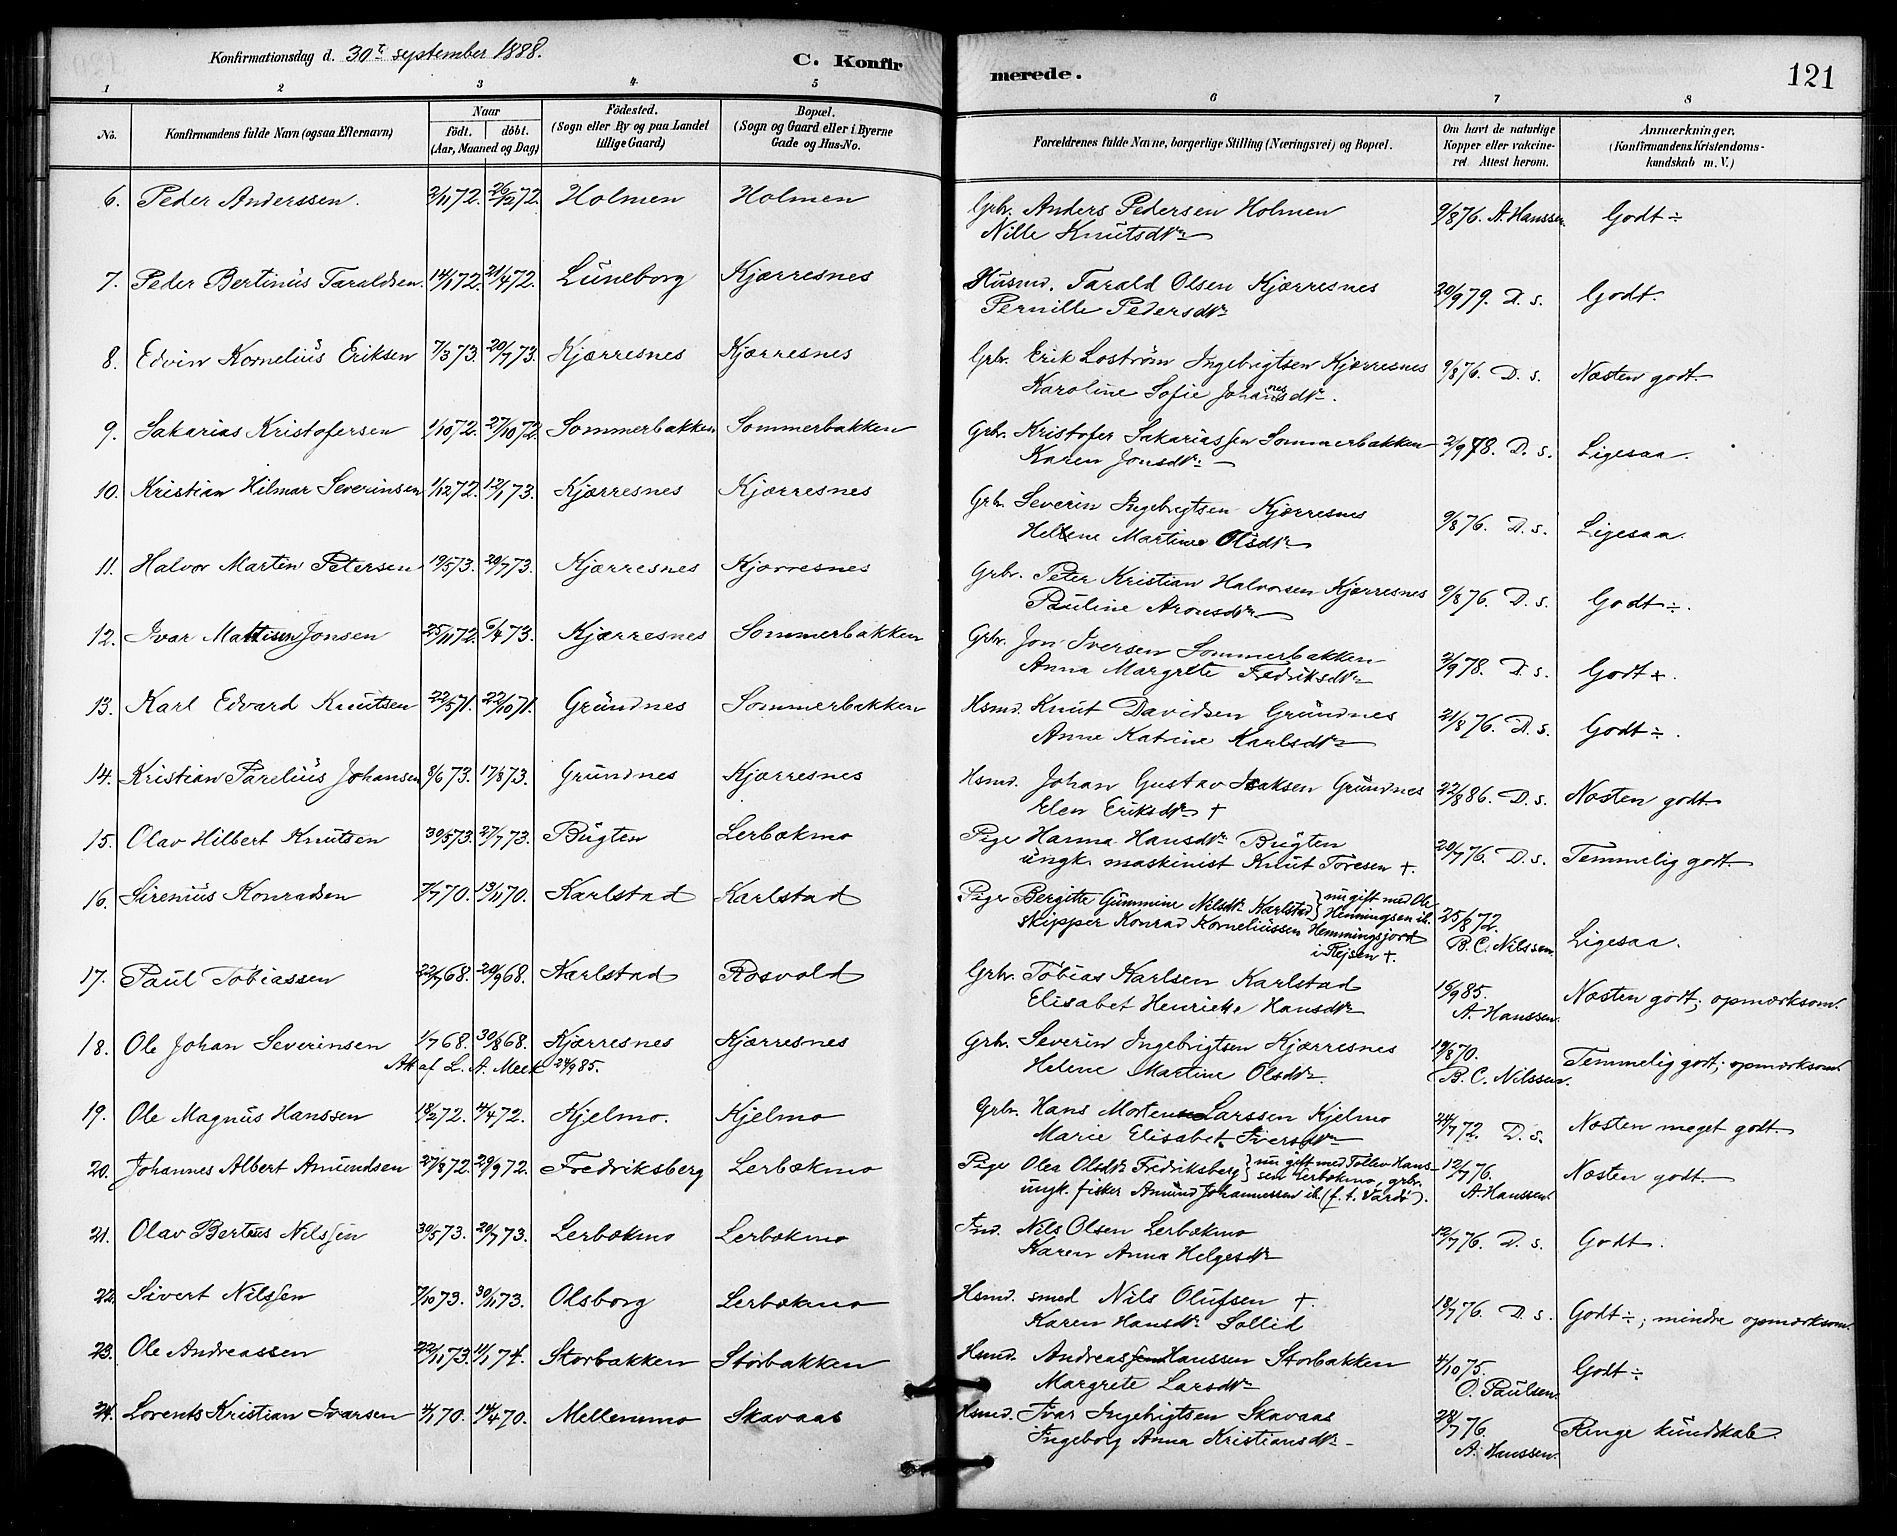 Konfirmationsdag d. 30te september 1888.
C. Konfir
merede.
121
1 2 3 4 5 6 7 8
No.
Konfirmandens fulde Navn (ogsaa Efternavn)
Naar
födt. | döbt.
(Aar, Maaned og Dag)
Födested.
(Sogn eller By og paa Landet
tillige Gaard)
Bopæl.
(Sogn og Gaard eller i Byerne
Gade og Hus-No.
Forældrenes fulde Navne, borgerlige Stilling (Næringsvei) og Bopæl.
Om havt de naturlige
Kopper eller vakcine-
ret. Attest herom.
Anmærkninger.
(Konfirmandens Kristendoms-
kundskab m. V.)
6. Peder Anderssen. 2/11 72. 26/12 72. Holmen Holmen Grbr. Anders Pedersen Holmen 9/8 76. A. Hanssen. Godt ÷
Nille Knutsdtr
7. Peder Bertinus Taraldsen. 14/1 72. 21/4 72. Luneborg Kjærresnes Husmd. Tarald Olsen Kjærresnes 20/9 79. D. s. Godt.
Pernille Pedersdtr
8. Edvin Kornelius Eriksen 7/3 73. 20/7 73. Kjærresnes Kjærresnes Grbr. Erik Loström Ingebrigtsen Kjærresnes 9/8 76. D. s. Næsten godt.
Karoline Sofie Johannesdtr.
9. Sakarias Kristofersen 1/10 72. 27/10 72. Sommerbakken Sommerbakken Grbr. Kristofer Sakariassen Sommerbakken 2/9 78. D. s. Ligesaa.
Karen Jonsdtr
10. Kristian Hilmar Severinsen 1/12 72. 12/1 73. Kjærresnes Kjærresnes Grbr. Severin Ingebrigtsen Kjærresnes 9/8 76. D. s. Ligesaa.
Helene Martine Olsdtr
11. Halvor Martin Petersen 19/5 73. 20/7 73. Kjærresnes Kjærresnes Grbr. Peter Kristian Halvorsen Kjærresnes 9/8 76. D. s. Godt ÷.
Pauline Aronsdtr
12. Ivar Mattisen Jonsen 25/11 72. 6/4 73. Kjærresnes Sommerbakken Grbr. Jon Iversen Sommerbakken 2/9 78. D. s. Godt +.
Anna Margrete Fredriksdtr
13. Karl Edvard Knutsen 22/5 71. 22/10 71. Grundnes Sommerbakken Hsmd. Knut Davidsen Grundnes 21/8 76. D. s. Godt ÷.
Anne Katrine Karlsdtr
14. Kristian Parelius Johansen 8/6 73. 17/8 73. Grundnes Kjærresnes Hsmd. Johan Gustav Isaksen Grundnes 22/8 86. D. s. Næsten godt
Elen Eriksdtr +
15. Olav Hilbert Knutsen 30/5 73. 27/7 73. Bugten Lerbækmo Pige Hanna Hansdtr Bugten 20/7 76. D. s. Temmelig godt.
ungk. maskinist Knut Toresen +.
16. Sirenius Konradsen 7/7 70. 13/11 70. Karlstad Karlstad Pige Bergitte Gummine Nilsdtr Karlstad } nu gift med Ole
Henningsen ib.
25/8 72.
skipper Konrad Korneliussen Hemmingsjord
i Rejsen +.
B. C. Nilssen. Ligesaa.
17. Paul Tobiassen 22/7 68. 20/9 68. Karlstad Rosvold Grbr. Tobias Karlsen Karlstad 16/9 85. Næsten godt; opmærksom.
Elisabet Henrikke Hansdtr A. Hanssen.
18. Ole Johan Severinsen 1/7 68. 30/8 68. Kjærresnes Kjærresnes Grbr. Severin Ingebrigtsen Kjærresnes 19/8 70. Temmelig godt; opmærksom.
Att. af L. A. Meek 24/9 85. Helene Martine Olsdtr. B. C. Nilssen.
19. Ole Magnus Hanssen 18/2 72. 4/4 72. Kjelmo. Kjelmo Grbr. Hans Morten Larssen Kjelmo 24/7 72. D. s. Næsten meget godt.
Marie Elisabet Iversdtr
20. Johannes Albert Amundsen 27/8 72. 29/9 72. Fredriksberg Lerbækmo Pige Olea Olsdtr Fredriksberg } nu gift med Tollev Hans-
sen Lerbækmo, grbr. 12/7 76. Næsten godt.
ungk. fisker Amund Johannessen ib. (f. t. Vardö). A. Hanssen.
21. Olav Berteus Nilssen 30/5 73. 20/7 73. Lerbækmo Lerbækmo Ind. Nils Olsen Lerbækmo 12/7 76. D. s. Godt.
Karen Anna Helgesdtr
22. Sivert Nilssen 7/10 73. 30/11 73. Olsborg Lerbækmo Hsmd. smed Nils Olufsen +. 18/7 76. D. s. Godt ÷; mindre opmærksom.
Karen Hansdtr Sollid
23. Ole Andreassen 22/11 73. 11/1 74. Storbakken Storbakken Hsmd. Andreas Hanssen Storbakken 4/10 75. Godt ÷
Margrete Larsdtr O. Paulsen.
24. Lorents Kristian Ivarsen 4/1 70. 14/4 70. Mellemmo Skavaas Hsmd. Ivar Ingebrigtsen Skavaas 28/7 76. Ringe kundskab.
Ingeborg Anna Kristiansdtr A. Hanssen.